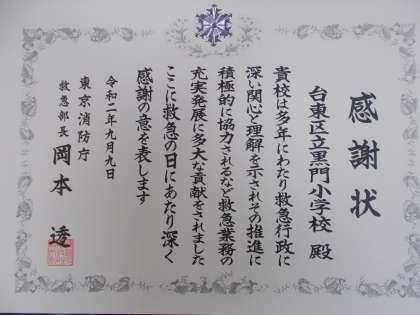 感謝状
台東区立黒門小学校 殿
貴校は多年にわたり救急行政に
深い関心と理解を示されその推進に
積極的に協力されるなど救急業務の
充実発展に多大な貢献をされました
ここに救急の日にあたり深く
感謝の意を表します
令和二年九月九日
東京消防庁
救急部長 岡本 透